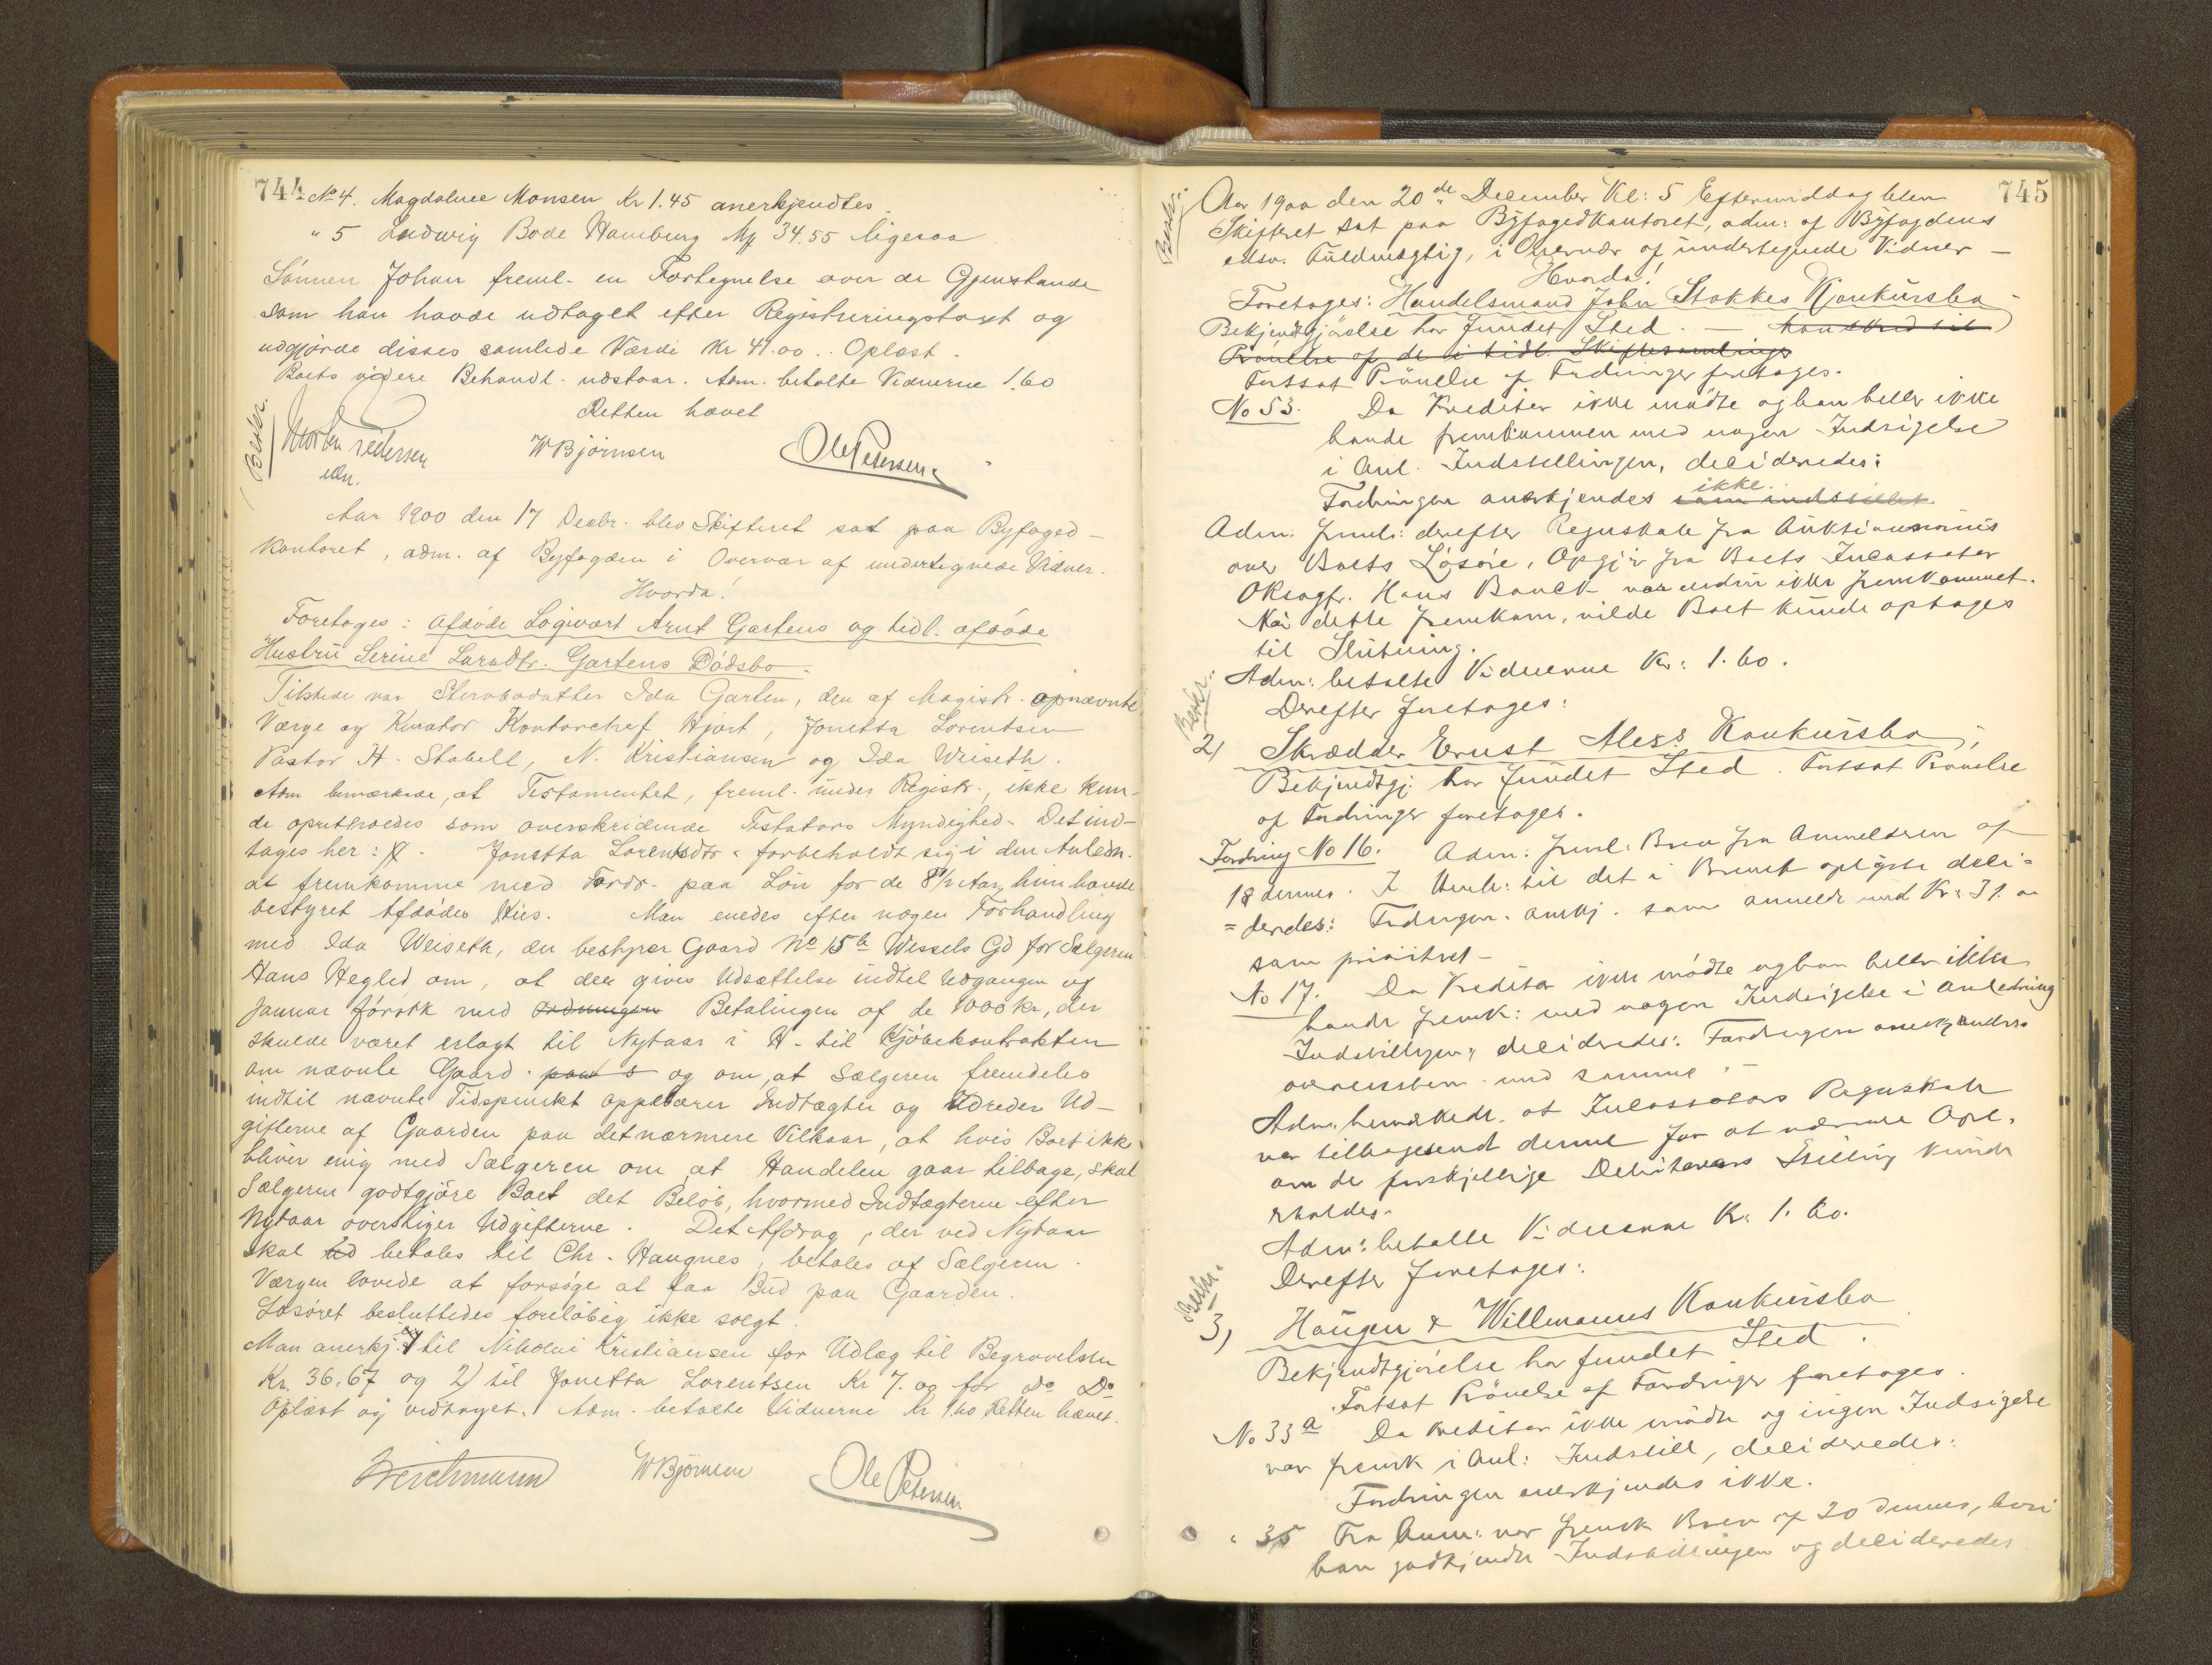 744
No 4. Magdalene Monsen Kr 1.45 anerkjendtes.
" 5 Ludwig Bode Hamburg Mk 34.55 ligesaa
Sönnen Johan freml. en Fortegnelse over de Gjenstande
som han havde udtaget efter Registreringstaxt og
udgjorde disses samlede Værdi Kr 41.00. Oplæst.
Boets videre Behandl. udstaar. Adm. betalte Vidnerne 1.60
Retten hævet
Beskr.
Morten Pedersen
edsv.
W Bjørnsen
Ole Petersen
Aar 1900 den 17 Decbr. blev Skifteret sat paa Byfoged-
kontoret, adm. af Byfogden i Overvær af undertegnede Vidner.
Hvorda!
Foretoges: Afdöde Logivært Arnt Gartens og tidl. afdöde
Hustru Serine Larsdtr. Gartens Dödsbo.
Tilstede var Stervbodatter Ida Garten, den af Magistr. opnævnte
Værge og Kurator Kontorchef Hjort, Jonetta Lorentsen
Pastor H. Stabell, N. Kristiansen og Ida Weiseth.
Adm bemærkede, at Testamentet, freml. under Registr., ikke kun-
de opretholdes som overskridende Testators Myndighed. Det ind-
tages her: Jonetta Lorentsdtr. forbeholdt sig i den Anledn.
at fremkomme med Fordr. paa Lön for de 8 1/2 Aar, hun havde
bestyret Afdödes Hus. Man enedes efter nogen Forhandling
med Ida Weiseth, der bestyrer Gaard No 15 b Wessels Gd for Sælgeren
Hans Hegled om, at der gives Udsættelse indtil Udgangen af
Januar förstk med Ordningen Betalingen af de 1000 kr, der
skulde været erlagt til Nytaar i H. til Kjöbekontrakten
om nævnte Gaard. paa s og om, at Sælgeren fremdeles
indtil nævnte Tidspunkt oppebærer Indtægter og Udreder Ud-
gifterne af Gaarden paa det nærmere Vilkaar, at hvis Boet ikke
bliver enig med Sælgeren om at Handelen gaar tilbage, skal
Sælgeren godtgjöre Boet det Belöb, hvormed Indtægterne efter
Nytaar overstiger Udgifterne. Det Afdrag, der ved Nytaar
skal betales til Chr. Haugnes, betales af Sælgeren.
Værgen lovede at forsöge at faa Bud paa Gaarden.
Lösöret besluttedes forelöbig ikke solgt.
Man anerkj. 1) til Nikolai Kristiansen for Udlæg til Begravelsen
Kr. 36.67 og 2) til Jonetta Lorentsen Kr 7.00 for Do Do
Oplæst og vedtaget. Adm. betalte Vidnerne Kr 1.60 Retten hævet.
W Bjørnsen
Ole Petersen
745
Beskr.
Aar 1900 den 20de December Kl: 5 Eftermiddag blev
Skifteret sat paa Byfogedkontoret, adm: af Byfogdens
edsv. Fuldmægtig, i Overvær af undertegnede Vidner -
Hvorda!
Foretages: Handelsmand John Stokkes Konkursbo -
Bekjendtgjörelse har fundet Sted. - Man skred til
Prövelse af de i tidl. Skiftesamlinger
Fortsat Prövelse af Fordringer foretoges.
No 53. Da Kreditor ikke mödte og han heller ikke
havde fremkommen med nogen Indsigelse
i Anl. Indstillingen, decideredes:
Fordringen anerkjendes ikke. som indstillet.
Adm. freml: derefter Regnskab fra Auktionarius
over Boets Lösöre, Opgjör fra Boets Incassator
Oksagf. Hans Bauck var endnu ikke fremkommet.
Naar dette fremkom, vilde Boet kunde optages
til Slutning.
Adm: betalte Vidnerne Kr: 1.60.
Beskr.
Derefter foretoges:
2) Skrædder Ernst Moss Konkursbo;
Bekjendtgj. har fundet Sted. Fortsat Prövelse
af Fordringer foretoges.
Fordring No 16. Adm: freml. Brev fra Anmelderen af
18 dennes. I Henh: til det i Brevet oplyste deci-
=deredes: Fordringen anerkj. som anmeldt med Kr: 31.00
som prioritet -
No 17. Da Kreditor ikke mödte og han heller ikke
havde fremk: med nogen Indsigelse i Anledning
Indstillingen, decideredes: Fordringen anerkjendes
overensstem. med samme. -
Adm. bemærkede, at Incassators Regnskab
var tilbagesendt denne for at nærmere Opl.
om de forskjellige Debitorers Stilling kunde
erholdes.
Adm: betalte Vidnerne Kr. 1.60.
Beskr.
Derefter foretoges:
3) Haugen & Willmanns Konkursbo
Bekjendtgjörelse har fundet Sted.
Fortsat Prövelse af Fordringer foretoges.
No 33 a Da Kreditor ikke mödte og ingen Indsigelse
var fremk i Anl: Indstill, decideredes:
Fordringen anerkjendes ikke.
" 35 Fra Anm: var fremk Brev af 20 dennes, hvori
han godkjendte Indstillingen og decideredes